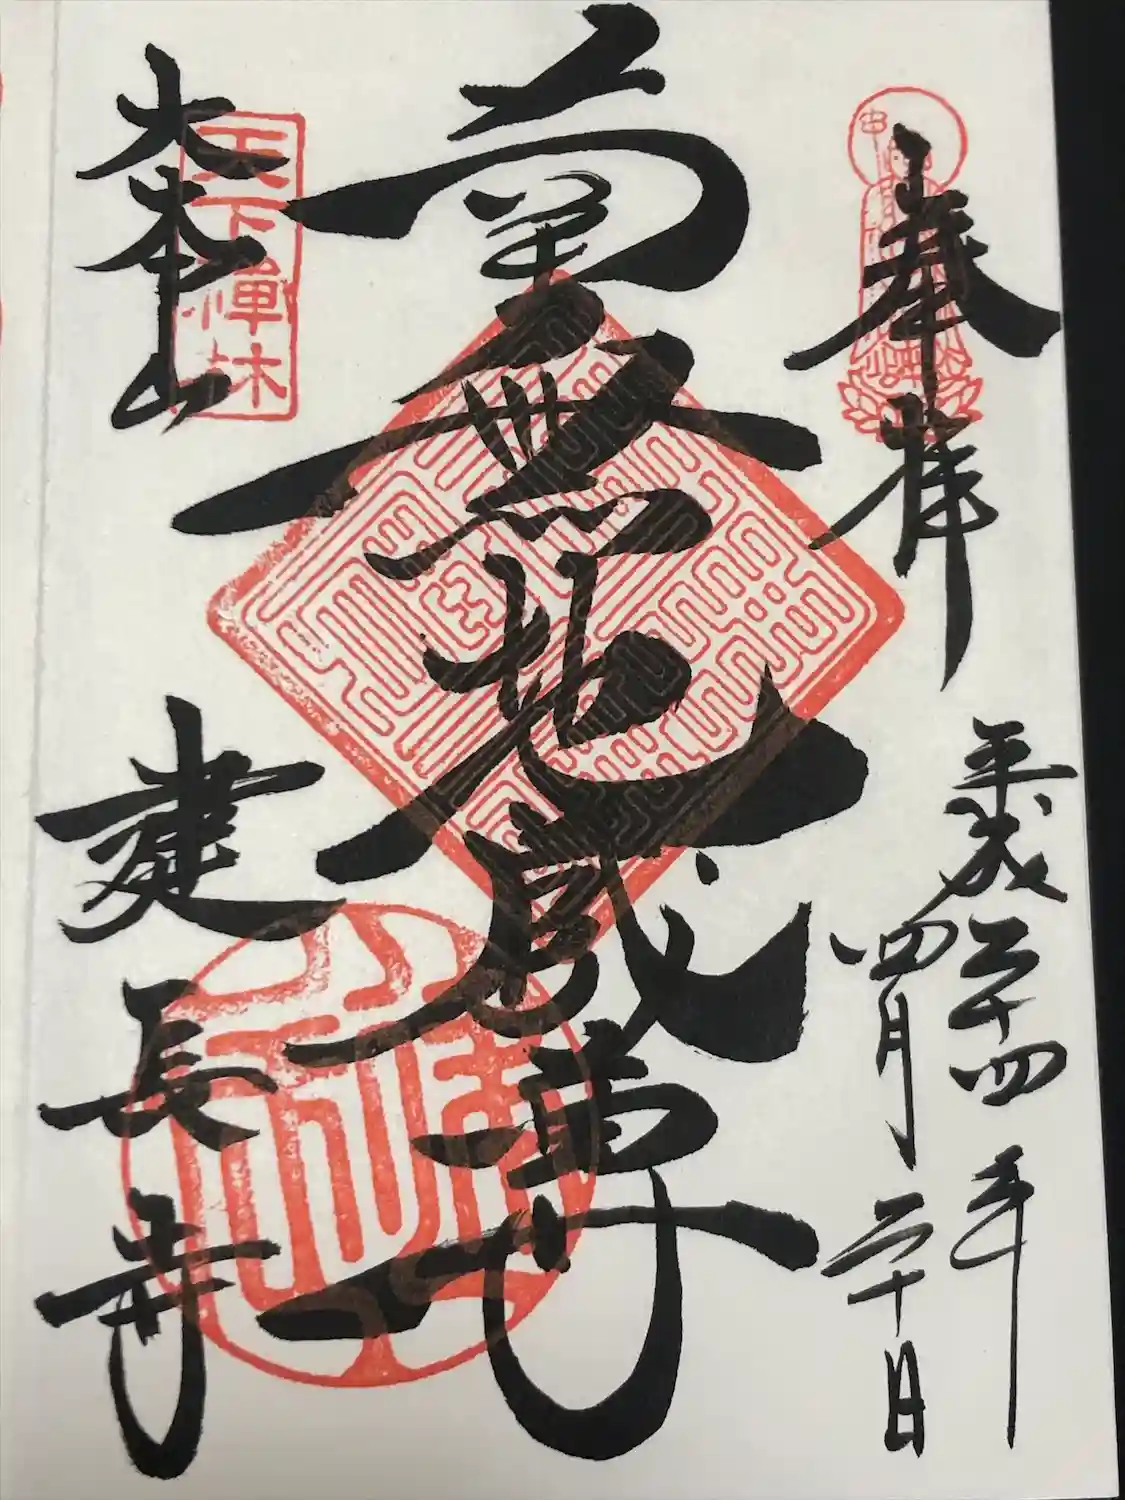 奉拝
平成二十四年
四月二十日
南無地蔵尊
大本山
建長寺
天下禅林